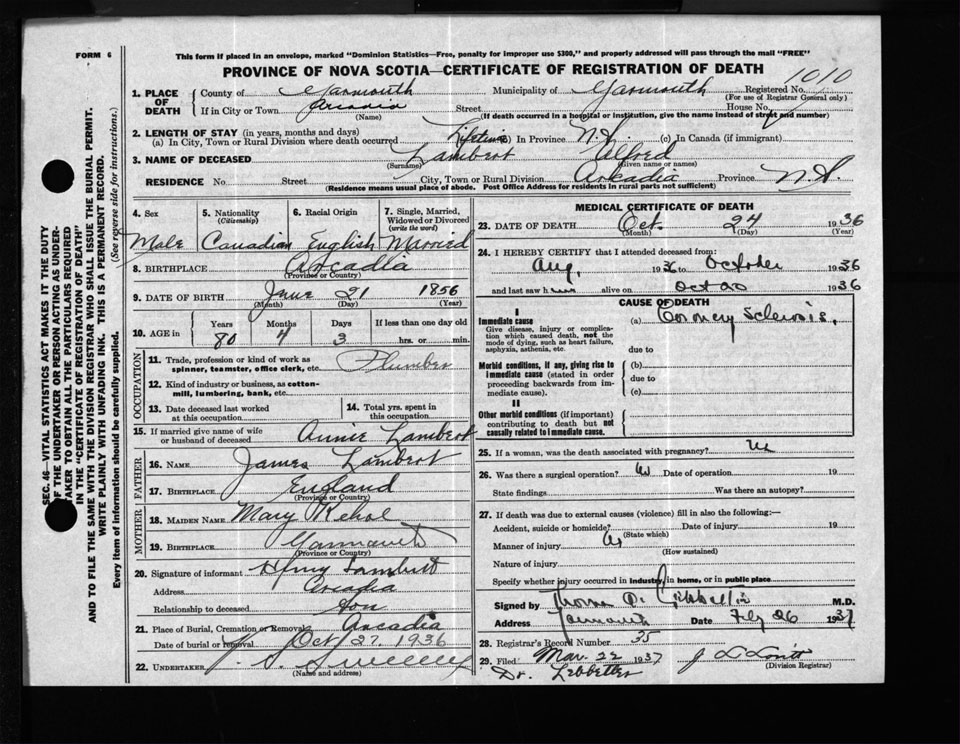 FORM 6
This form if placed in an envelope, marked "Dominion Statistics—Free, penalty for improper use $300," and properly addressed will pass through the mail "FREE"
PROVINCE OF NOVA SCOTIA—CERTIFICATE OF REGISTRATION OF DEATH
1010
1. PLACE OF DEATH { County of Yarmouth Municipality of Yarmouth Registered No.
(For use of Registrar General only)
If in City or Town Arcadia Street House No.
(Name) (If death occurred in a hospital or institution, give the name instead of street and number)
2. LENGTH OF STAY (in years, months and days)
(a) In City, Town or Rural Division where death occurred Lifetime (b) In Province N.S. (c) In Canada (if immigrant)
3. NAME OF DECEASED Lambert Alfred
(Surname) (Given name or names)
RESIDENCE No. Street City, Town or Rural Division Arcadia Province N.S.
(Residence means usual place of abode. Post Office Address for residents in rural parts not sufficient)
4. Sex 5. Nationality (Citizenship) 6. Racial Origin 7. Single, Married, Widowed or Divorced (write the word)
Male Canadian English Married
8. BIRTHPLACE Arcadia
(Province or Country)
9. DATE OF BIRTH June 21 1856
(Month) (Day) (Year)
10. AGE in Years Months Days If less than one day old
80 4 3 hrs. or min.
OCCUPATION
11. Trade, profession or kind of work as spinner, teamster, office clerk, etc. Plumber
12. Kind of industry or business, as cotton-mill, lumbering, bank, etc.
13. Date deceased last worked at this occupation
14. Total yrs. spent in this occupation
15. If married give name of wife or husband of deceased Annie Lambert
FATHER
16. NAME James Lambert
17. BIRTHPLACE England
(Province or Country)
MOTHER
18. MAIDEN NAME Mary
19. BIRTHPLACE Yarmouth
(Province or Country)
20. Signature of informant Lambert
Address Arcadia
Relationship to deceased Son
21. Place of Burial, Cremation or Removal Arcadia
Date of burial or removal Oct 27. 1936
22. UNDERTAKER Sweeney
(Name and address)
MEDICAL CERTIFICATE OF DEATH
23. DATE OF DEATH Oct. 24 1936
(Month) (Day) (Year)
24. I HEREBY CERTIFY that I attended deceased from:
Aug. 1936 to October 1936
and last saw h alive on Oct 20 1936
CAUSE OF DEATH
I
Immediate cause (a) Coronary Sclerosis.
Give disease, injury or complication which caused death, not the mode of dying, such as heart failure, asphyxia, asthenia, etc.
due to
Morbid conditions, if any, giving rise to immediate cause (stated in order proceeding backwards from immediate cause).
(b)
due to
(c)
II
Other morbid conditions (if important) contributing to death but not causally related to immediate cause.
25. If a woman, was the death associated with pregnancy?
26. Was there a surgical operation? Date of operation 19
State findings Was there an autopsy?
27. If death was due to external causes (violence) fill in also the following:—
Accident, suicide or homicide? Date of injury 19
(State which)
Manner of injury
(How sustained)
Nature of injury
Specify whether injury occurred in industry, in home, or in public place
Signed by M.D.
Address Yarmouth Date Feb 26 1937
28. Registrar's Record Number 35
29. Filed Mar. 22 1937
(Division Registrar)
Dr. Lebbetter
SEC. 46—VITAL STATISTICS ACT MAKES IT THE DUTY OF THE UNDERTAKER OR PERSON ACTING AS UNDERTAKER TO OBTAIN ALL THE PARTICULARS REQUIRED IN THE "CERTIFICATE OF REGISTRATION OF DEATH"
AND TO FILE THE SAME WITH THE DIVISION REGISTRAR WHO SHALL ISSUE THE BURIAL PERMIT.
WRITE PLAINLY WITH UNFADING INK. THIS IS A PERMANENT RECORD.
Every item of information should be carefully supplied. (See reverse side for instructions.)